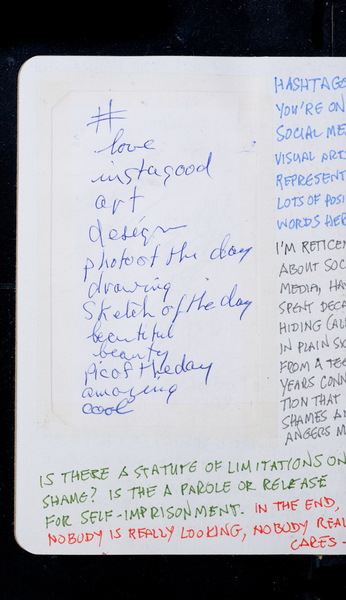 #
love
instagood
art
design
photo of the day
drawing
Sketch of the day
beautiful
beauty
Pic of the day
amazing
cool
HASHTAGS
YOU'RE ON
SOCIAL ME
VISUAL ARTS
REPRESENT
LOTS OF POSI
WORDS HER
I'M RETICEN
ABOUT SOC
MEDIA, HAV
SPENT DECA
HIDING (AL
IN PLAIN SI
FROM A TEE
YEARS CONN
TION THAT
SHAMES AN
ANGERS M
IS THERE A STATUTE OF LIMITATIONS ON
SHAME? IS THE A PAROLE OR RELEASE
FOR SELF-IMPRISONMENT. IN THE END,
NOBODY IS REALLY LOOKING, NOBODY REAL
CARES -